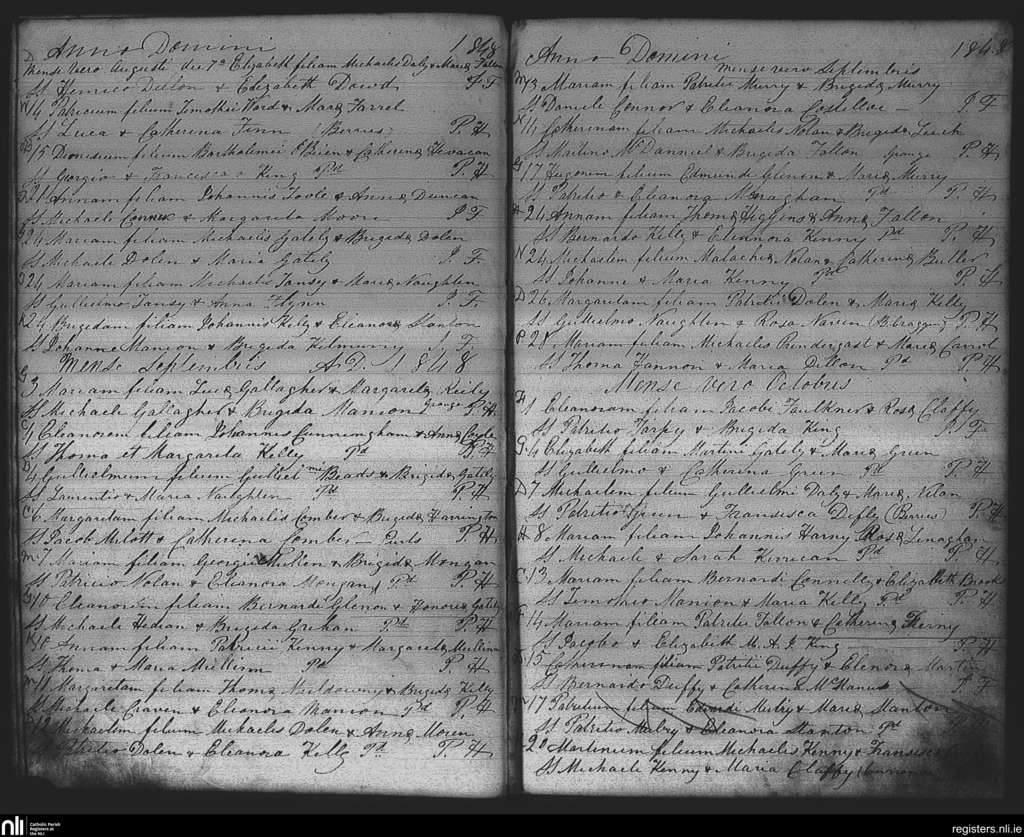 Anno Domini 1848
D Mense vero Augusti die 7a Elizabeth filiam Michaelis Daly & Maria Fallon
SS Henrico Dillon & Elizabeth Dowd P F
W 14 Patricium filium Timothei Ward & Maria Farrel
SS Luca & Catherina Finn (Berries) P. H
15 Dionisium filium Bartholomei O'Brien & Catherina
SS Georgio & Francesca King Pd P. H
21 Annam filiam Johannis Toole & Anna Duncan
SS Michaele Connor & Margarita Moore P F
G 24 Mariam filiam Michaelis Gately & Brigida Dolen
SS Michaele Dolen & Maria Gately P. F.
24 Mariam filiam Michaelis Tansy & Maria Naughten
SS Gulielmo Tansy & Anna Flynn P. F.
K 24 Brigidam filiam Johannis Kelly & Eleanora Stanton
SS Johanne Manion & Brigida Kilmurry P F
Mense Septembris A.D. 1848
G 3 Mariam filiam Luca Gallagher & Margarita Reidy
SS Michaele Gallagher & Brigida Manion George P. H.
C 4 Eleanoram filiam Johannis Cunningham & Anna Coyle
SS Thoma et Margarita Kelly Pd P. H
B 4 Gullielmum filium Gulliel mi Beads & Brigida Gately
SS Laurentio & Maria Naughten Pd P. H
C 6 Margaritam filiam Michaelis Comber & Brigida Harrington
SS Jacob Milott & Catherina Comber P. H
M 7 Mariam filiam Georgii Mullen & Brigida Mongan
SS Patricio Nolan & Eleanora Mongan Pd P. H
G 10 Eleanoram filiam Bernardi Glenon & Honora Gately
SS Michaele Hedian & Brigida Grehan Pd P. H
K 10 Annam filiam Patricii Kenny & Margarita
SS Thoma & Maria Pd P. H
M 11 Margaritam filiam Thoma & Brigida Kelly
SS Michaele Craven & Eleanora Manion Pd P. H
D 12 Michaelem filium Michaelis Dolen & Anna Moren
SS Patritio Dolen & Eleanora Kelly Pd P. H
Anno Domini 1848
mense vero Septembris
M 13 Mariam filiam Patritii Murry & Brigida Murry
SS Daniele Connor & Eleanora Costelloe P F
N 14 Catherinam filiam Michaelis Nolan & Brigida Leech
SS Martino McDanniel & Brigida Fallon George P. H
G 17 Hugonem filium Edmundi & Maria Murry
SS Patritio & Eleanora Monaghan Pd P. H
H 24 Annam filiam Thoma Higgins & Anna Fallon
SS Bernardo Kelly & Eleanora Kenny Pd P. H
N 24 Michaelem filium Malachii Nolan & Catherina Butler
SS Johanne & Maria Kenny Pd P. H
D 26 Margaritam filiam Patritii Dolen & Maria Kelly
SS Gullielmo Naughten & Rosa Naven P. H
P 28 Mariam filiam Michaelis Prendergast & Maria Carrol
SS Thoma Fannon & Maria Dillon Pd P. H
Mense vero Octobris
F 1 Eleanoram filiam Jacobi Faulkner & Rosa Claffy
SS Patritio Tarpy & Brigida King P. F.
G 4 Elizabeth filiam Martini Gately & Maria Green
SS Gullielmo & Catherina Green Pd P. H
D 7 Michaelem filium Gullielmi Daly & Maria Nolan
SS Patritio Green & Francisca (Berries) P. H
H 8 Mariam filiam Johannis Harny & Rosa Lenaghan
SS Michaele & Sarah Kerrican Pd P. H
C 13 Mariam filiam Bernardi Connelly & Elizabeth Brooks
SS Timotheo Manion & Maria Kelly Pd P. H
14 Mariam filiam Patritii Fallon & Catherina
SS Jacobo & Elizabeth M. A. J. King P. H
15 Catherinam filiam Patritii Duffy & Elenora Martin
SS Bernardo Duffy & Catherina McManus P F
17 Patritium filium Edwardi & Maria Stanton
SS Patritio & Eleanora Stanton Pd
20 Martinum filium Michaelis Kenny &
SS Michaele Kenny & Maria Claffy
nli
Catholic Parish
Registers at
the NLI
registers.nli.ie